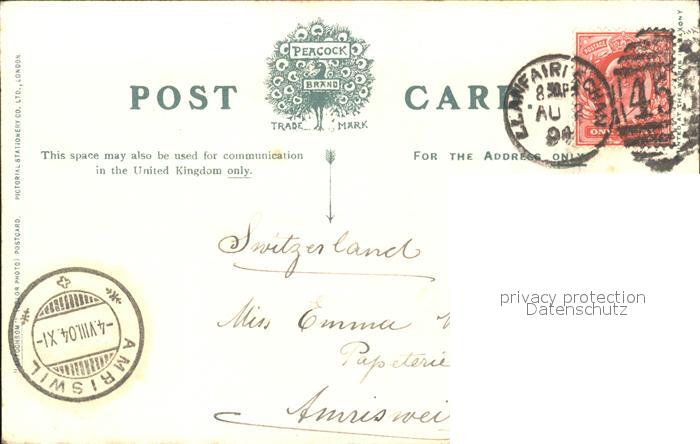 PEACOCK
BRAND
TRADE MARK
POST CARD
This space may also be used for communication
in the United Kingdom only.
FOR THE ADDRESS ONLY
POSTAGE
ONE
LLANFAIRFECHAN
AU
PICTORIAL STATIONERY CO. LTD., LONDON
POSTCARD.
Switzerland
Miss Emma
Papeterie
Amriswei
AMRISWIL
-4.VIII.04.XI-
privacy protection
Datenschutz